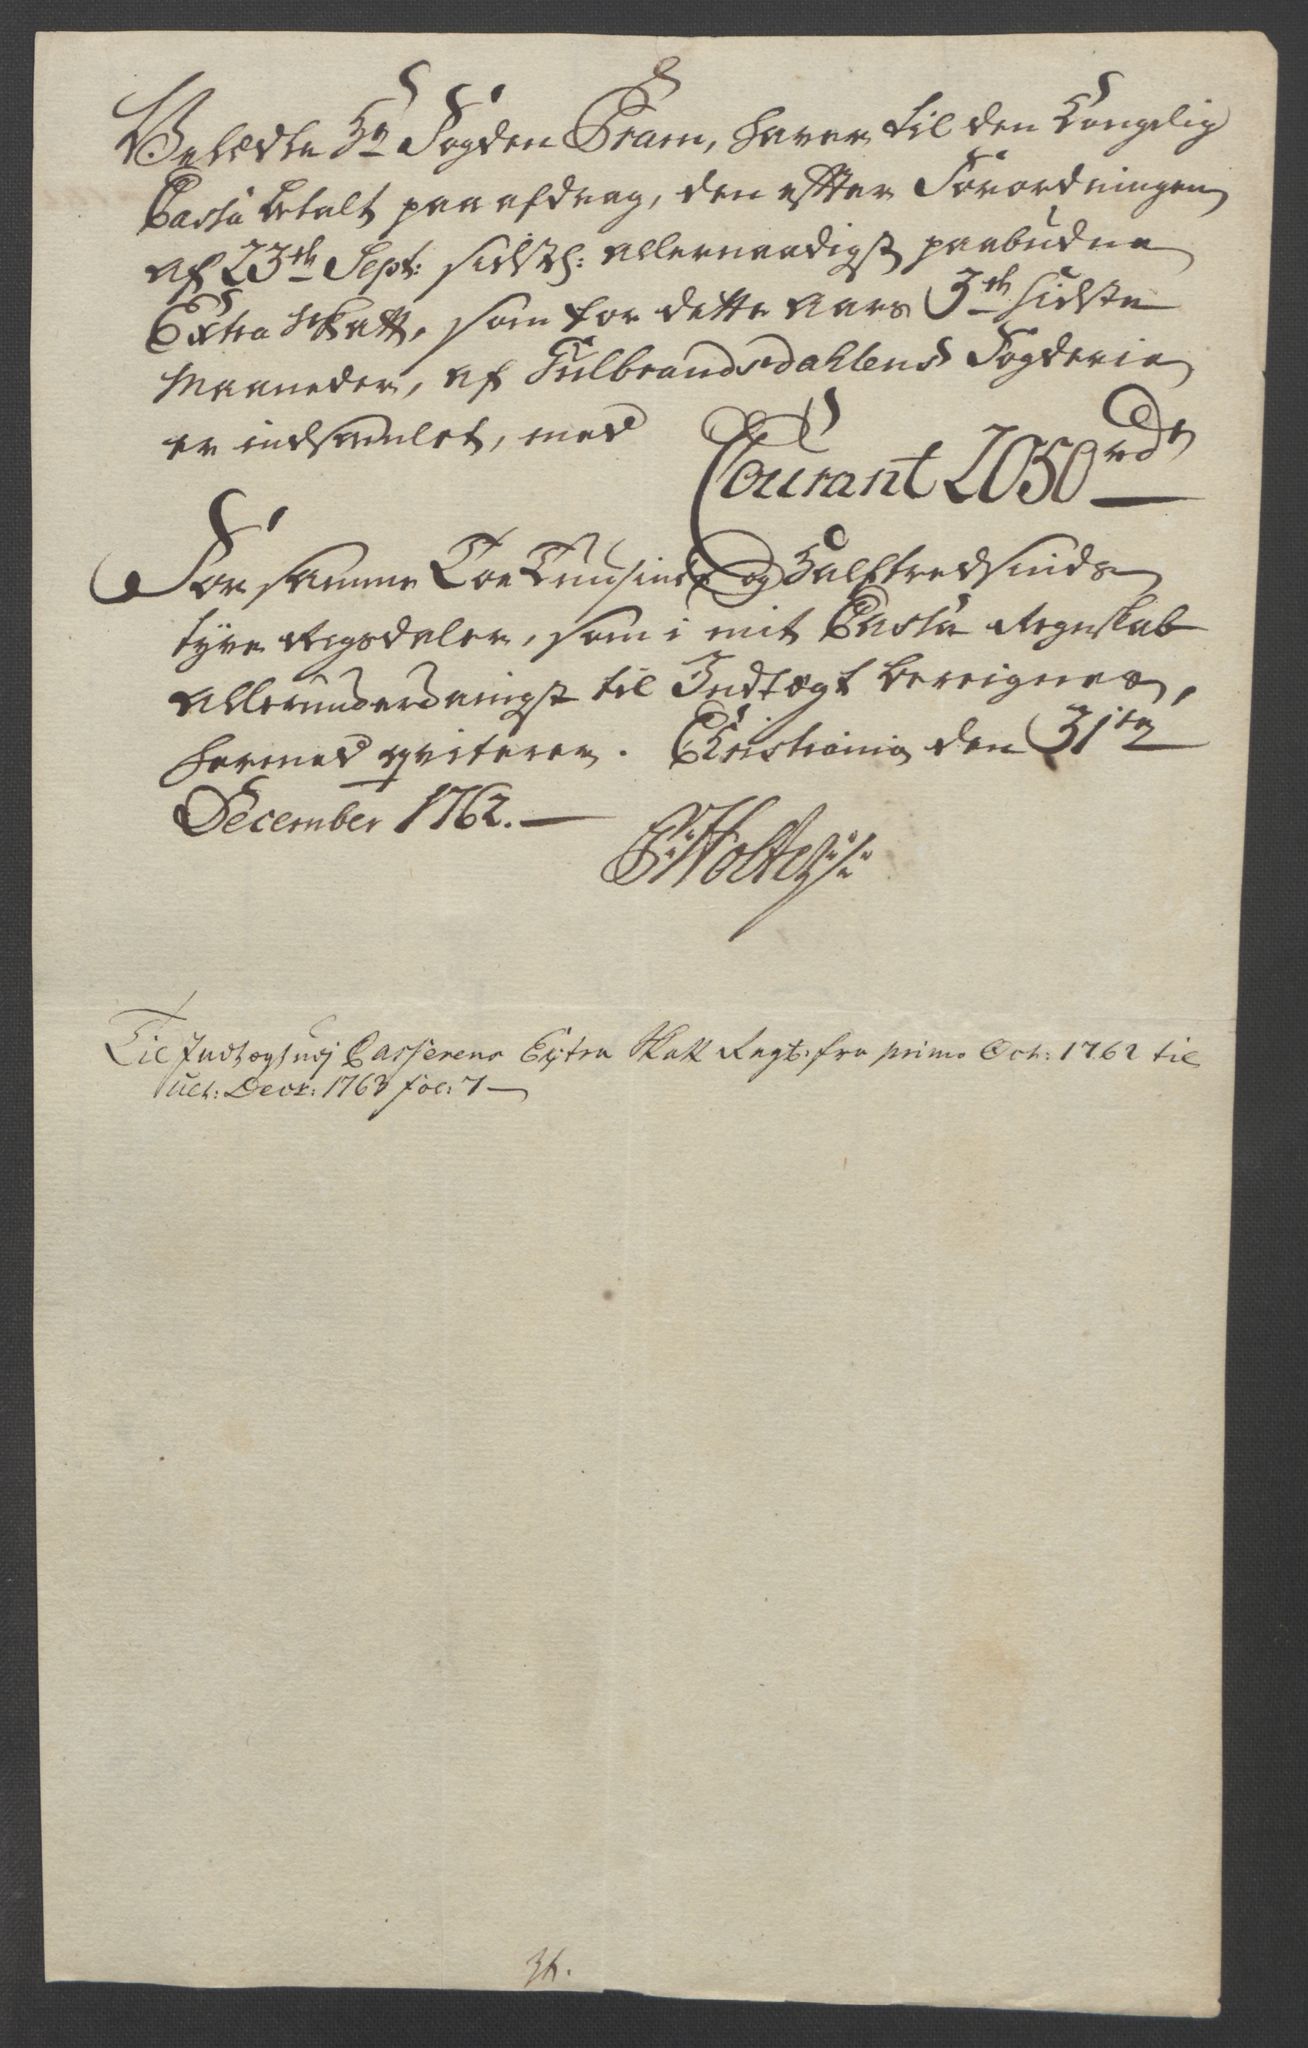 Velædle Hr Fogden Pram, haver til den Kongelig
Cassa betalt paa afdrag, den efter Forordningen
af 23th Sept: sidstl: allernaadigst paabudne
Extra Skatt, som for dette Aars 3th sidste
Maaneder, af Gulbrandsdahlens Fogderie
er indsamlet, med
Courant 2050 rdr
For samme Toe Tusinde og Halftredsinds
tyve Rigsdaler, som i mit Cassa Regnskab
allerunderdanigst til Indtægt bereignes,
hermed qviterer. Christiania den 31te
December 1762.
P: Holte
Til Indtægt udj Casserens Extra Skatt Regt: fra primo Oct: 1762 til
ult: Decr: 1763 fol: 7